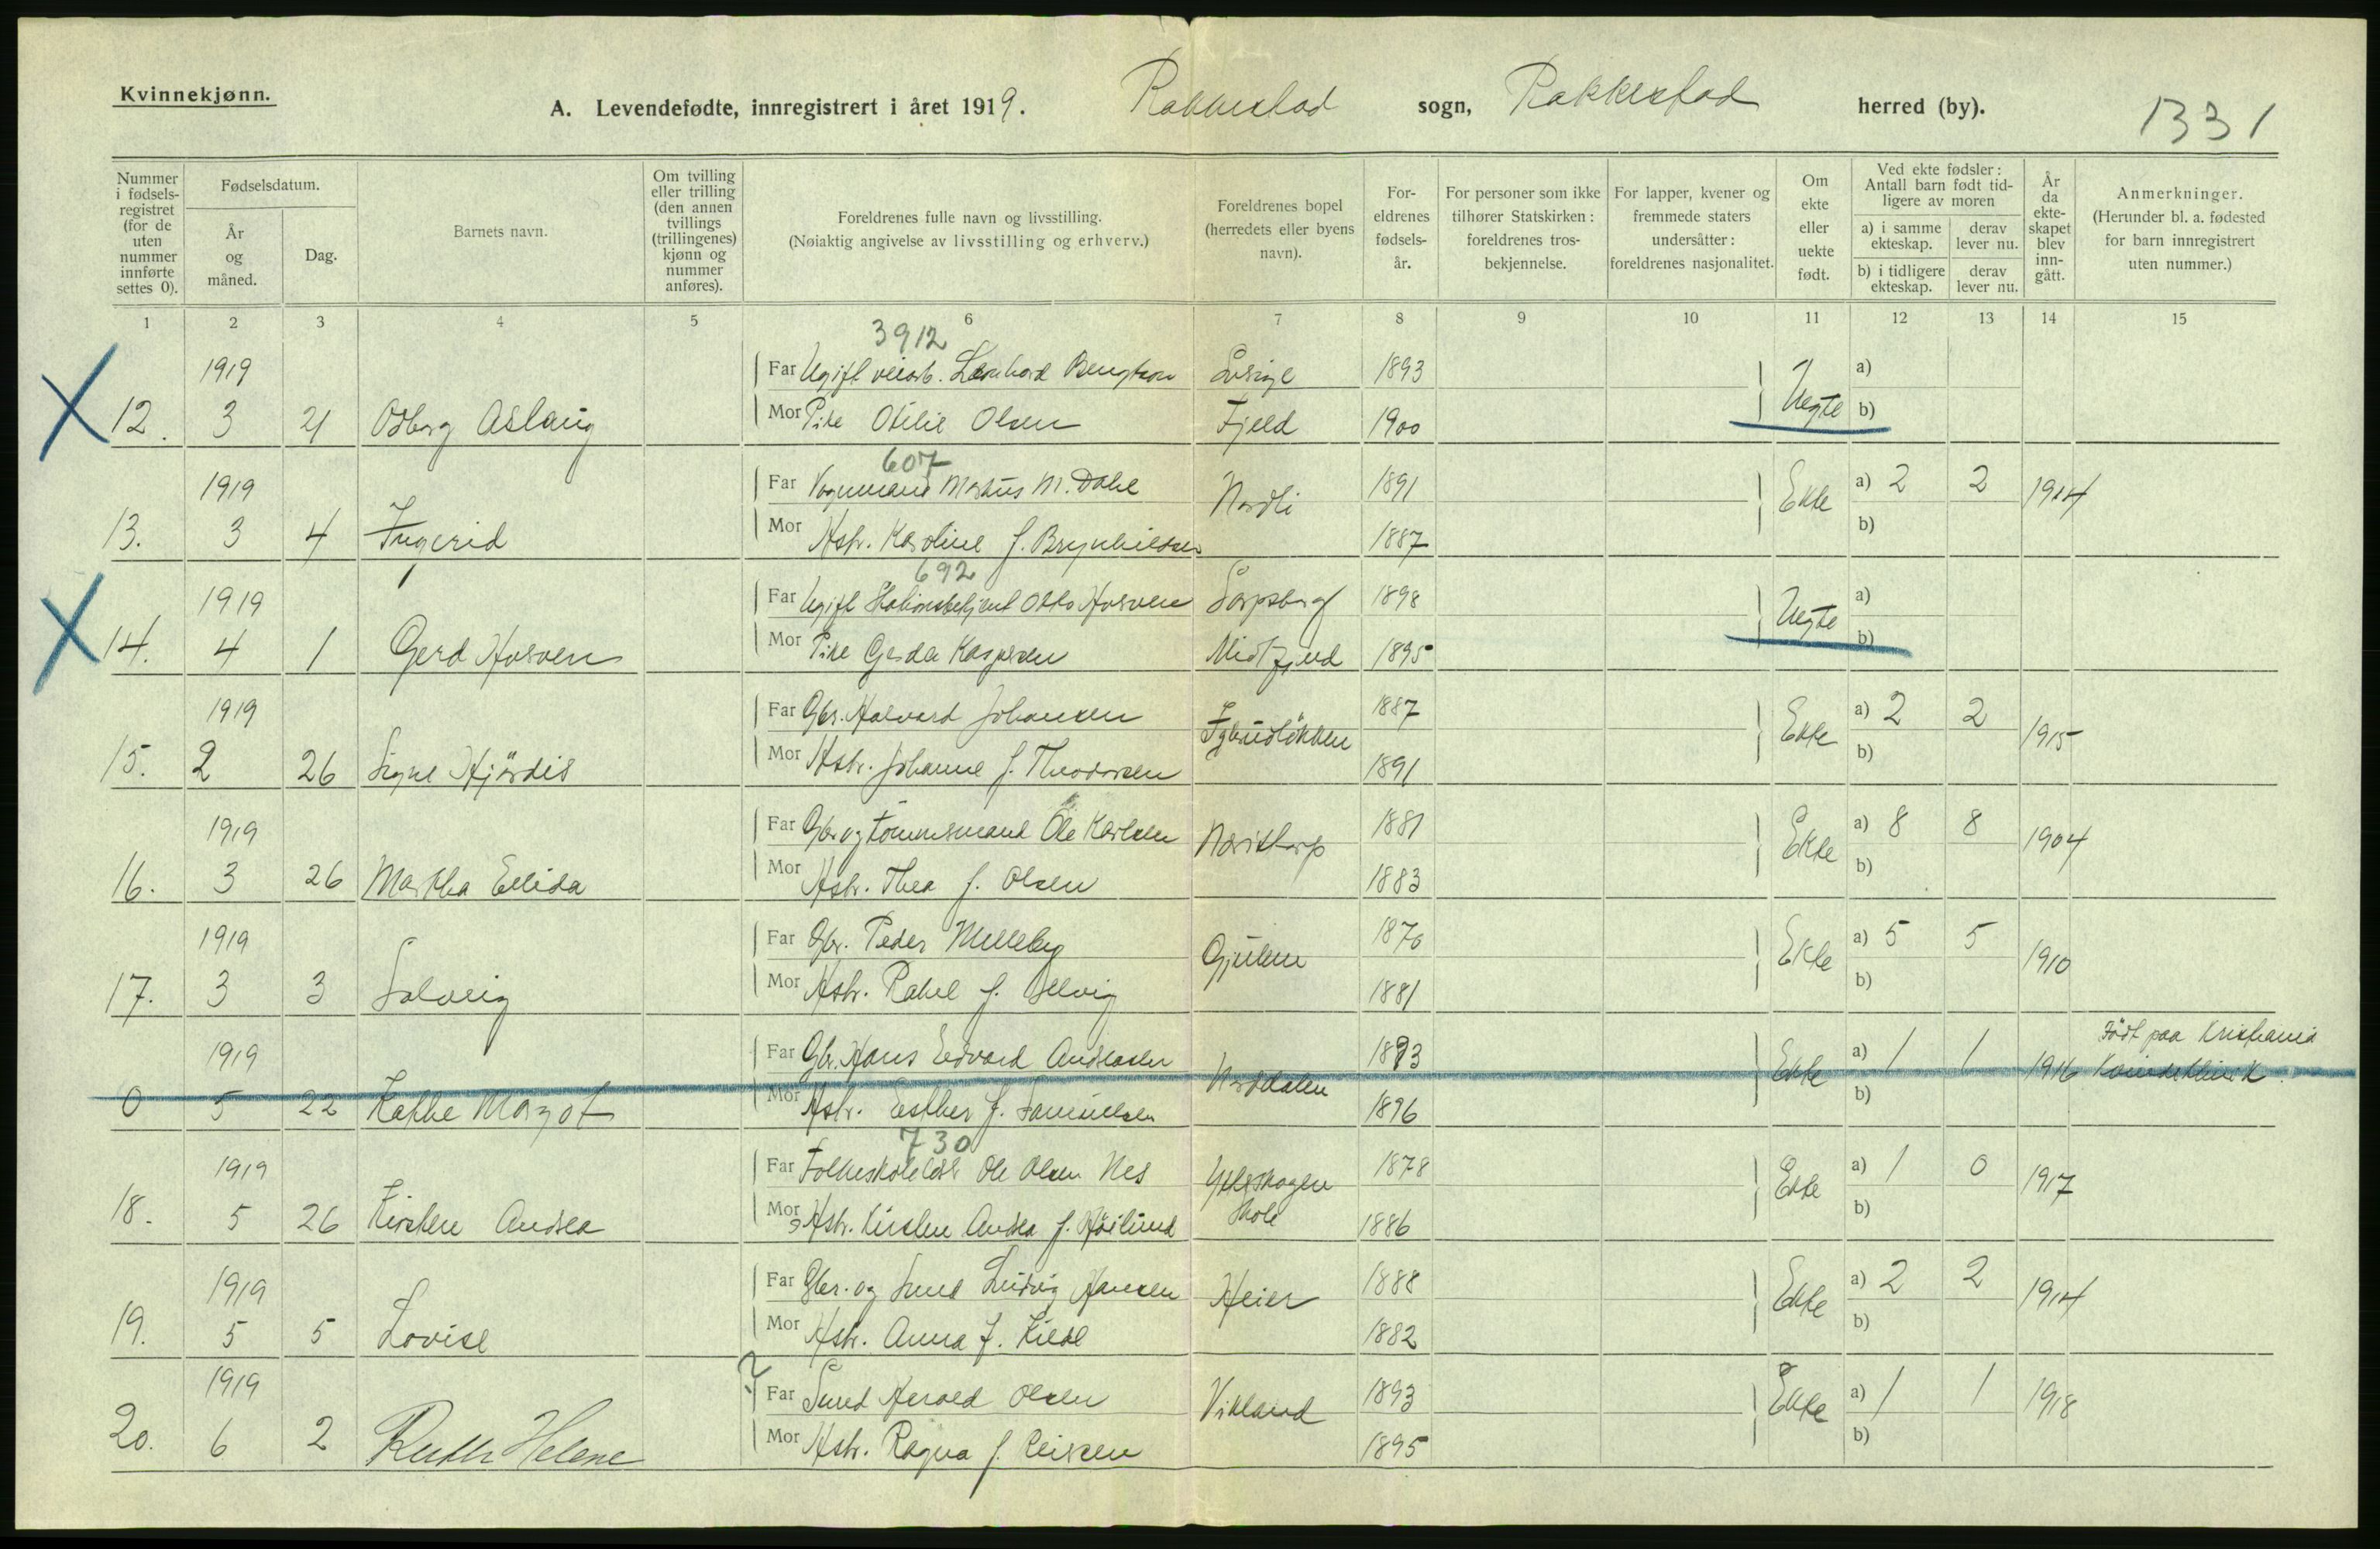 Kvinnekjønn.
A. Levendefødte, innregistrert i året 1919. Rakkestad sogn, Rakkestad herred (by). 1331
Nummer i fødsels-registret (for de uten nummer innførte settes 0).
Fødselsdatum.
År og måned.
Dag.
Barnets navn.
Om tvilling eller trilling (den annen tvillings (trillingenes) kjønn og nummer anføres).
Foreldrenes fulle navn og livsstilling.
(Nøiaktig angivelse av livsstilling og erhverv.)
Foreldrenes bopel (herredets eller byens navn).
For-eldrenes fødsels-år.
For personer som ikke tilhører Statskirken: foreldrenes tros-bekjennelse.
For lapper, kvener og fremmede staters undersåtter: foreldrenes nasjonalitet.
Om ekte eller uekte født.
Ved ekte fødsler: Antall barn født tid-ligere av moren
a) i samme ekteskap.
derav lever nu.
b) i tidligere ekteskap.
derav lever nu.
År da ekte-skapet blev inn-gått.
Anmerkninger.
(Herunder bl. a. fødested for barn innregistrert uten nummer.)
1 2 3 4 5 6 7 8 9 10 11 12 13 14 15
3912
1919 Far Ugift veiarb. Bengtson Sverige 1893 a)
X 12. 3 21 Odborg Aslaug Mor Pike Otilie Olsen Fjeld 1900 Uegte b)
607
1919 Far Vognmand Markus M. Dahl Nordli 1891 Ekte a) 2 2 1914
13. 3 4 Ingerid Mor Hstr. Karoline f. Brynhildsen 1887 b)
692
1919 Far Ugift Stationsbetjent Otto Sarpsborg 1898 Uegte a)
X 14. 4 1 Gerd Mor Pike Gerda Kaspersen Midtfjeld 1895 b)
1919 Far Gbr. Halvard Johansen 1887 Ekte a) 2 2 1915
15. 2 26 Signe Hjördis Mor Hstr. Johanne f. Theodorsen 1891 b)
1919 Far Gbr. og tömmermand Ole Karlsen 1881 Ekte a) 8 8 1904
16. 3 26 Martha Ellida Mor Hstr. Thea f. Olsen 1883 b)
1919 Far Gbr. Peder Melleby Gjulem 1876 Ekte a) 5 5 1910
17. 3 3 Solveig Mor Hstr. Rakel f. 1881 b)
1919 Far Gbr. Hans Edvard Andreassen 1893 Ekte a) 1 1 1916 Födt paa Kristiania Kvindeklinik.
0 5 22 Kathe Margot Mor Hstr. Esther f. Samuelsen 1896 b)
730
1919 Far Folkeskolelær. Ole Olsen Nes 1878 Ekte a) 1 0 1917
18. 5 26 Kirsten Andrea Mor Hstr. Kirsten Andrea f. Höilund Skole 1886 b)
1919 Far Gbr. og Smed Ludvig Hansen Heier 1888 Ekte a) 2 2 1914
19. 5 5 Lovise Mor Hstr. Anna f. 1882 b)
1919 ? Far Smed Harald Olsen Vikland 1893 Ekte a) 1 1 1918
20. 6 2 Ruth Helene Mor Hstr. Ragna f. 1895 b)